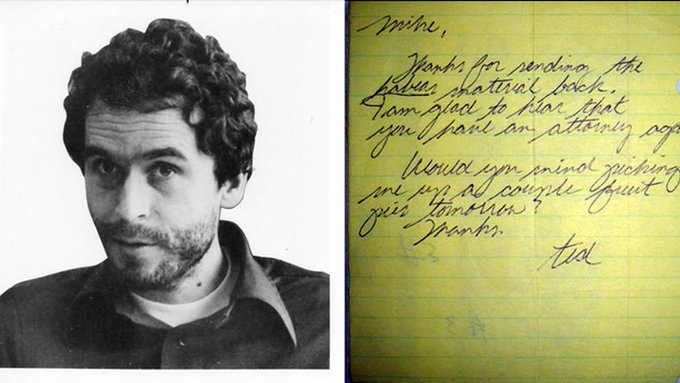 Mike,
Thanks for sending the
habeas material back.
I am glad to hear that
you have an attorney again
Would you mind picking
me up a couple fruit
pies tomorrow?
Thanks.
ted